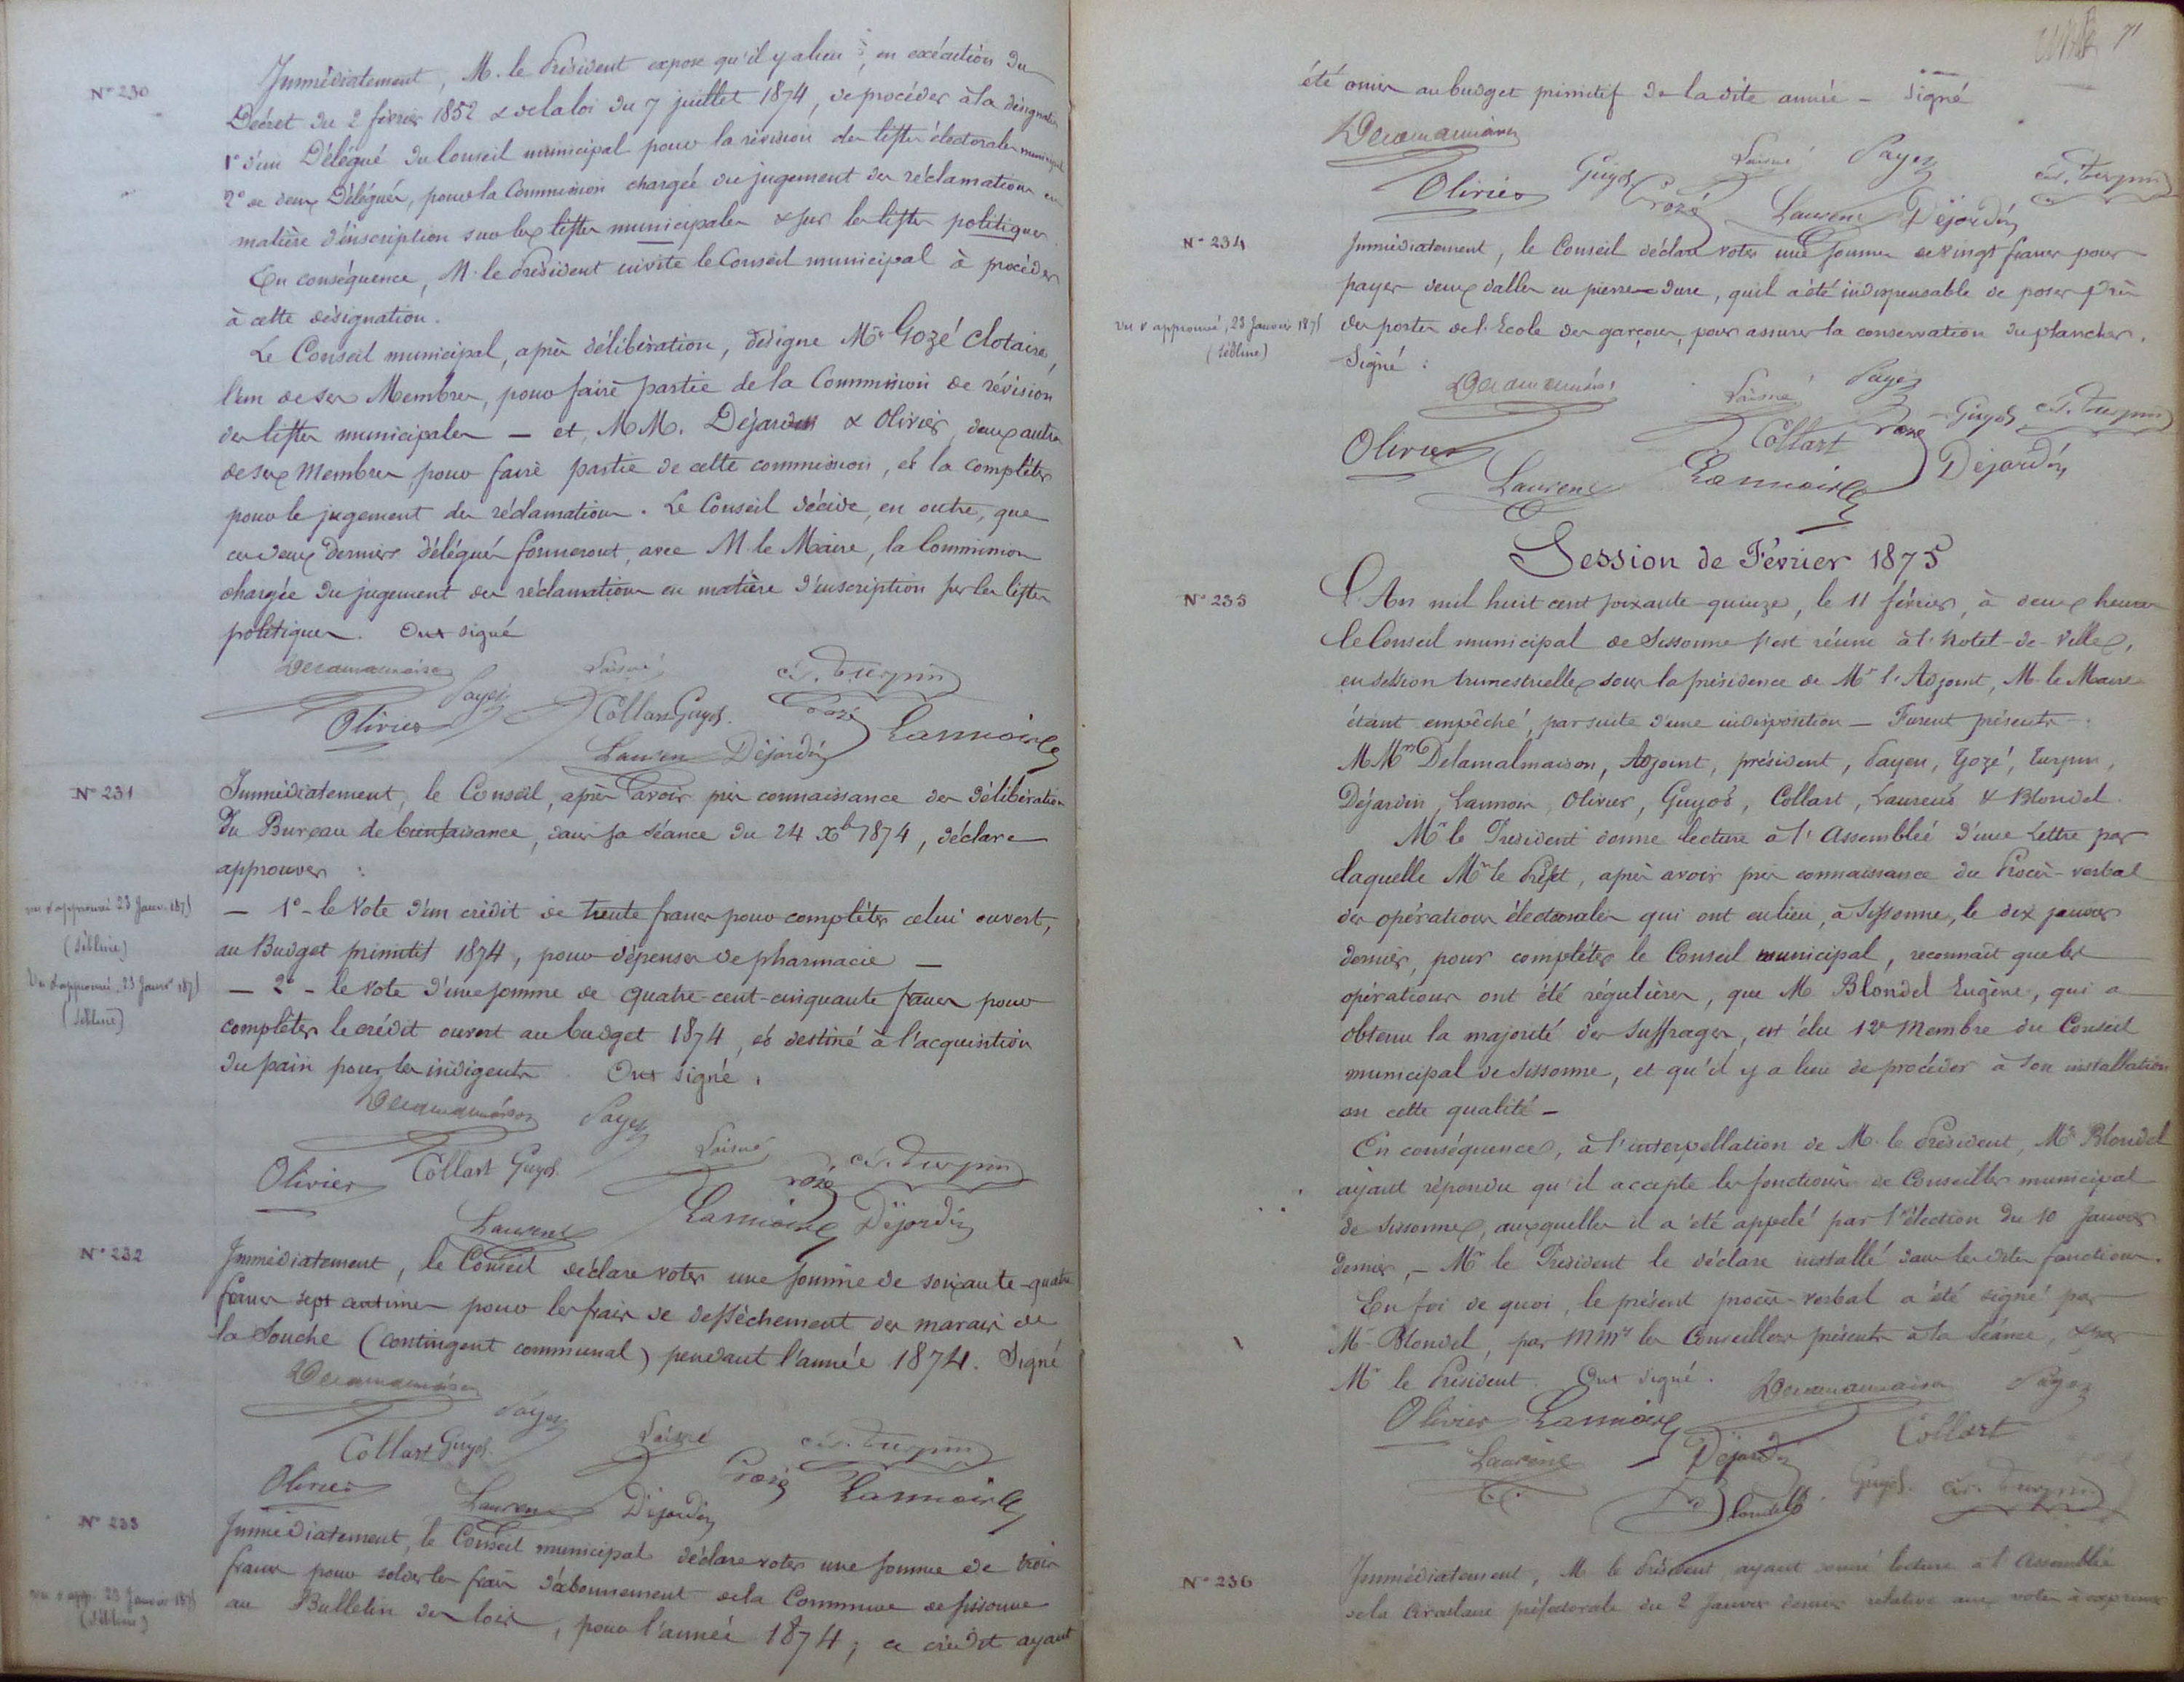 N° 230
Immédiatement, M. le Président expose qu'il y a lieu, en exécution du
Décret du 2 février 1852 & de la loi du 7 juillet 1874, de procéder à la désignation
1° d'un Délégué du Conseil municipal pour la révision des listes électorales municipales
2° de deux Délégués, pour la Commission chargée du jugement des réclamations en
matière d'inscription sur les listes municipales & sur les listes politiques.
En conséquence, M. le Président invite le Conseil municipal à procéder
à cette désignation.
Le Conseil municipal, après délibération, désigne Mr Gozé Clotaire,
l'un de ses Membres, pour faire partie de la Commission de révision
des listes municipales — et, MM. Déjardin & Olivier, deux autres
de ses Membres pour faire partie de cette commission, et la compléter
pour le jugement des réclamations. Le Conseil décide, en outre, que
ces deux derniers délégués formeront, avec M. le Maire, la Commission
chargée du jugement des réclamations en matière d'inscription sur les listes
politiques. Ont signé
Delamalmaison
Payen
Laisné
cs. Turpin
Olivier
Collart
Guyot
Gozé
Lannoir
Laurent
Déjardin
N° 231
Immédiatement, le Conseil, après avoir pris connaissance des délibérations
du Bureau de bienfaisance, dans sa séance du 24 Xb 1874, déclare
approuver :
vu & approuvé 23 Janv. 1875
(Sébline)
— 1° - le vote d'un crédit de trente francs pour compléter celui ouvert,
au Budget primitif 1874, pour dépenses de pharmacie —
Vu & approuvé, 23 Janvr 1875
(Sébline)
— 2° - le vote d'une somme de quatre-cent-cinquante francs pour
compléter le crédit ouvert au budget 1874, et destiné à l'acquisition
du pain pour les indigents. Ont signé.
Delamalmaison
Payen
Laisné
cs. Turpin
Olivier
Collart
Guyot
Gozé
Laurent
Lannoir
Déjardin
N° 232
Immédiatement, le Conseil déclare voter une somme de soixante-quatre
francs sept centimes pour les frais de dessèchement des marais de
la Souche (contingent communal) pendant l'année 1874. Signé
Delamalmaison
Payen
Collart
Guyot
Laisné
cs. Turpin
Olivier
Laurent
Déjardin
Gozé
Lannoir
N° 233
Immédiatement, le Conseil municipal déclare voter une somme de trois
francs pour solder les frais d'abonnement de la Commune de Sissonne
vu & app. 23 Janvier 1875
(Sébline)
au Bulletin des lois, pour l'année 1874 ; ce crédit ayant
71
été omis au budget primitif de la dite année — Signé
Delamalmaison
Olivier
Guyot
Gozé
Laisné
Payen
Laurent
Déjardin
cs. Turpin
N° 234
Immédiatement, le Conseil déclare voter une somme de vingt francs pour
payer deux dalles en pierre dure, qu'il a été indispensable de poser près
vu & approuvé, 23 Janvier 1875
(Sébline)
des portes de l'Ecole des garçons, pour assurer la conservation du plancher.
Signé :
Delamalmaison
Laisné
Payen
Olivier
Collart
Gozé
Guyot
cs. Turpin
Laurent
Lannoir
Déjardin
Session de Février 1875
N° 235
L'An mil huit cent soixante-quinze, le 11 février, à deux heures
le Conseil municipal de Sissonne s'est réuni à l'Hotel-de-Ville,
en session trimestrielle sous la présidence de Mr l'Adjoint, M. le Maire
étant empêché, par suite d'une indisposition — Furent présents :
MMrs Delamalmaison, Adjoint, président, Payen, Gozé, Turpin,
Déjardin, Lannoir, Olivier, Guyot, Collart, Laurent & Blondel.
Mr le Président donne lecture à l'Assemblée d'une Lettre par
laquelle Mr le Préfet, après avoir pris connaissance du Procès-verbal
des opérations électorales qui ont eu lieu, à Sissonne, le dix janvier
dernier, pour compléter le Conseil municipal, reconnait que les
opérations ont été régulières, que M. Blondel Eugène, qui a
obtenu la majorité des suffrages, est élu 12e Membre du Conseil
municipal de Sissonne, et qu'il y a lieu de procéder à son installation
en cette qualité —
En conséquence, à l'interpellation de M. le Président, Mr Blondel
ayant répondu qu'il accepte les fonctions de Conseiller municipal
de Sissonne, auxquelles il a été appelé par l'élection du 10 Janvier
dernier, — Mr le Président le déclare installé dans les dites fonctions.
En foi de quoi, le présent procès-verbal a été signé par
Mr Blondel, par MMrs les Conseillers présents à la séance, & par
Mr le Président. Ont signé.
Delamalmaison
Payen
Olivier
Lannoir
Laurent
Déjardin
Collart
Blondel
Guyot
cs. Turpin
N° 236
Immédiatement, M. le Président ayant donné lecture à l'Assemblée
de la Circulaire préfectorale du 2 Janvier dernier relative aux votes à exprimer